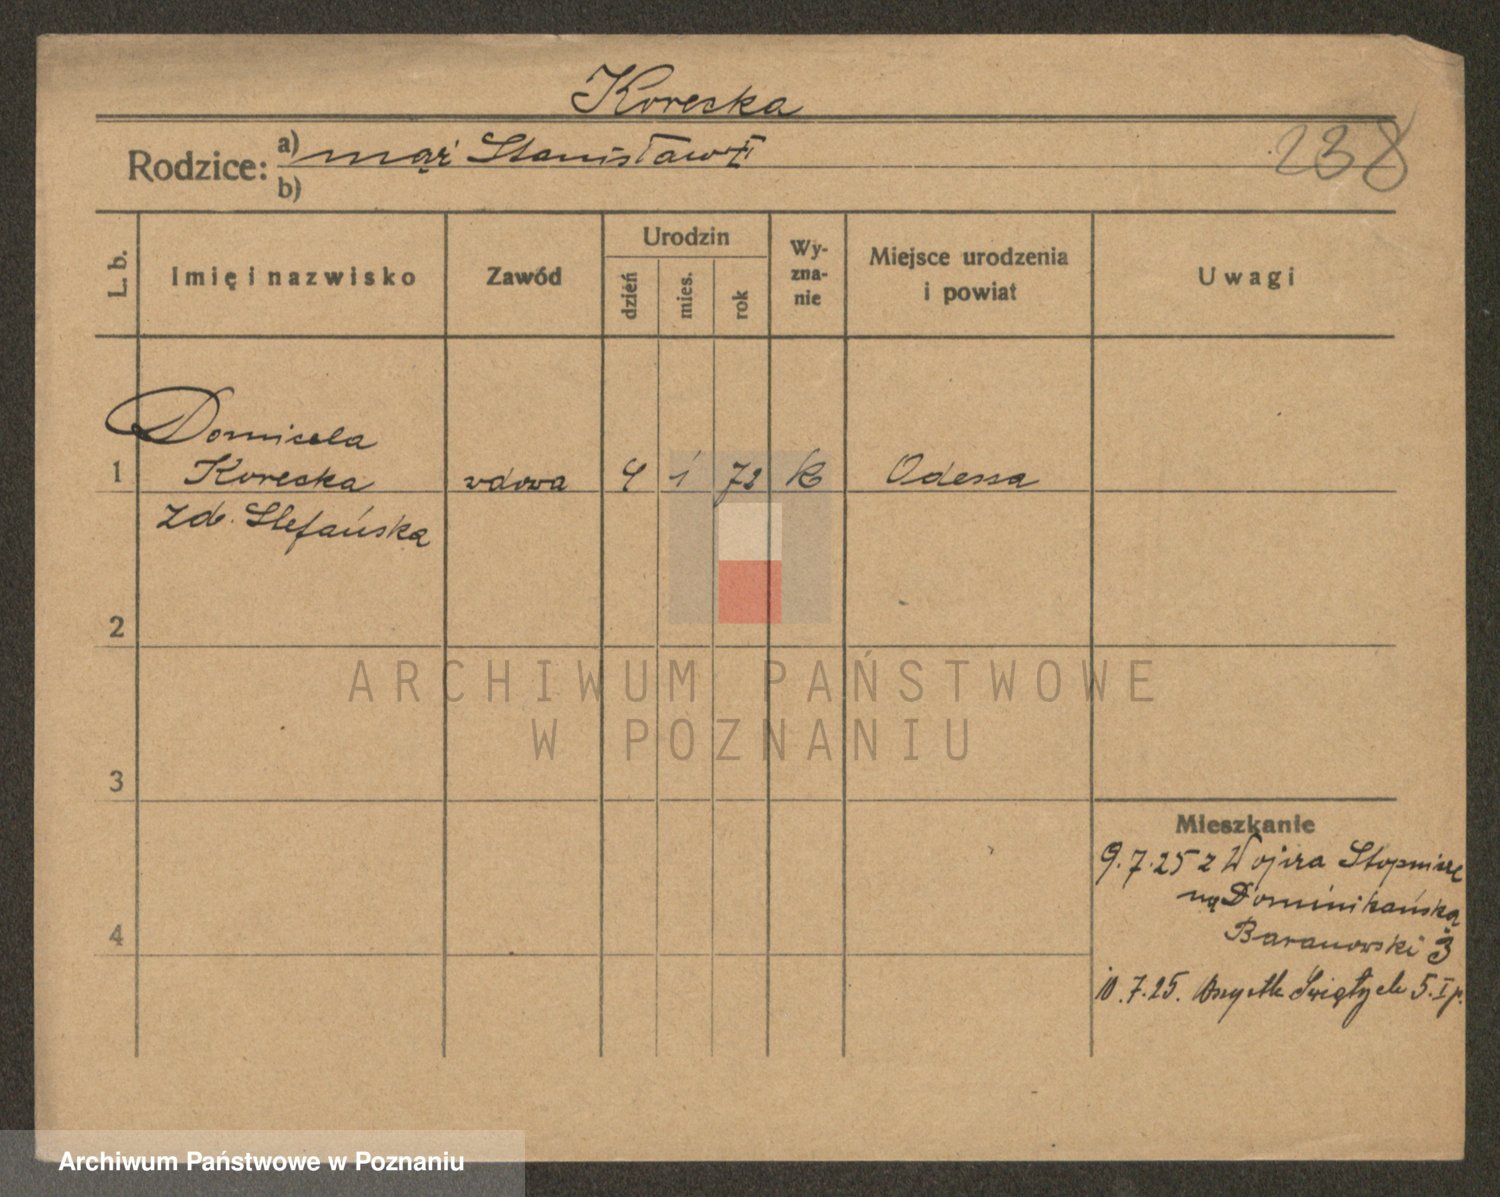 Korecka
Rodzice: a) mąż Stanisław II
238
b)
L. b.
Imię i nazwisko
Zawód
Urodzin
dzień
mies.
rok
Wy-
zna-
nie
Miejsce urodzenia
i powiat
Uwagi
Domicela
1 Korecka wdowa 4 1 72 k Odessa
zd. Stefańska
2
ARCHIWUM PAŃSTWOWE
W POZNANIU
3
Mieszkanie
9.7.25 z
na Dominikańską
4
Baranowski 3
10.7.25. Świętych 5. I p.
Archiwum Państwowe w Poznaniu